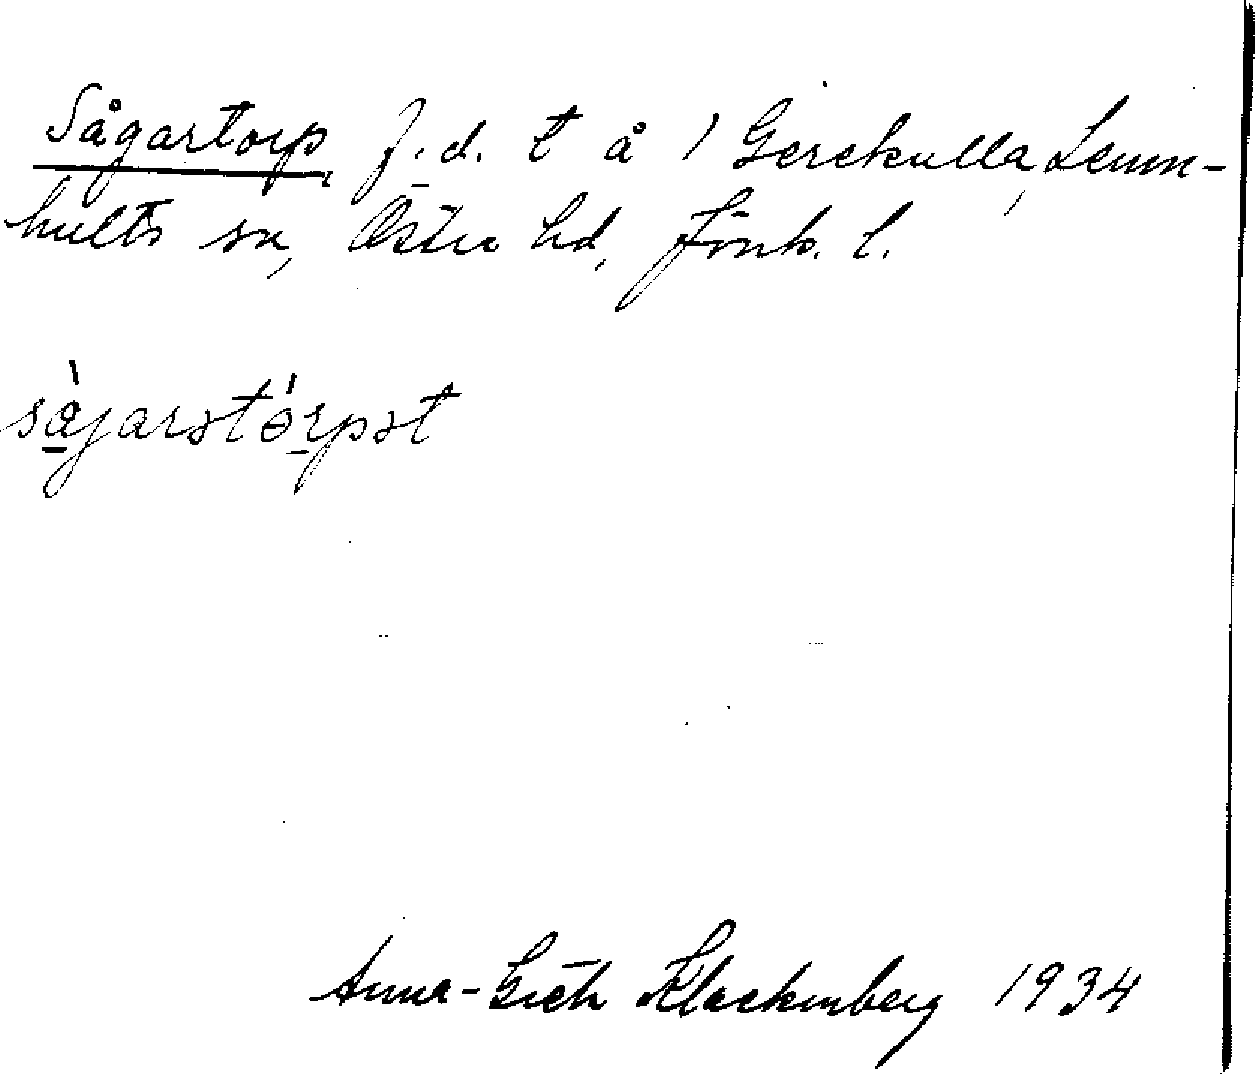 Sågartorp, f.d. t å 1 Gerekulla, Lemn-
hults sn, Östra hd, Jönk. l.
så̀jarstórpət
Anna-Greth Klackenberg 1934